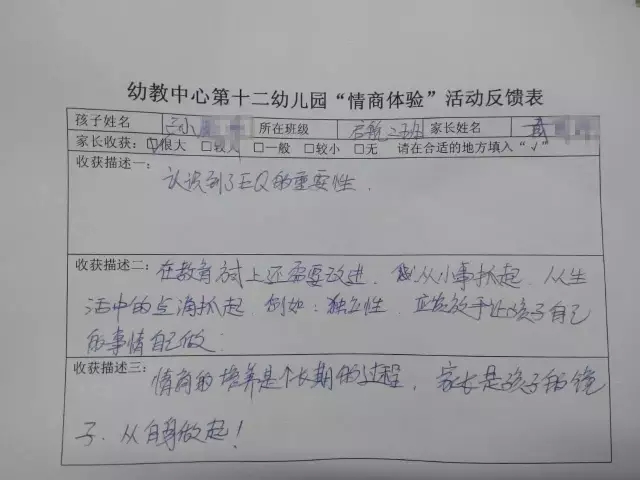 幼教中心第十二幼儿园“情商体验”活动反馈表
孩子姓名 小 所在班级 启航二班 家长姓名
家长收获：☑很大 □较大 □一般 □较小 □无 请在合适的地方填入“√”
收获描述一：
认识到了EQ的重要性.
收获描述二：
在教育方式上还需要改进. 从小事抓起. 从生
活中的点滴抓起. 例如：独立性. 应该放手让孩子自己
的事情自己做.
收获描述三：
情商的培养是个长期的过程. 家长是孩子的镜
子. 从自身做起！